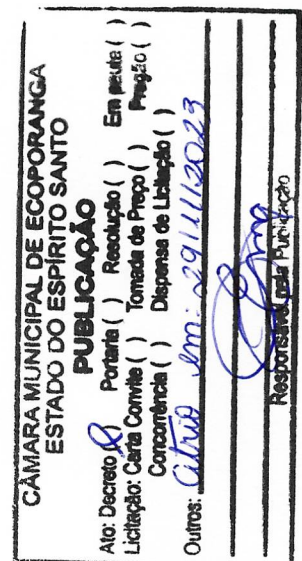 CÂMARA MUNICIPAL DE ECOPORANGA
ESTADO DO ESPÍRITO SANTO
PUBLICAÇÃO
Ato: Decreto (X) Portaria ( ) Resolução ( ) Em pauta ( )
Licitação: Carta Convite ( ) Tomada de Preço ( ) Pregão ( )
Concorrência ( ) Dispensa de Licitação ( )
Outros: átrio em: 29/11/2023
Responsável pela Publicação